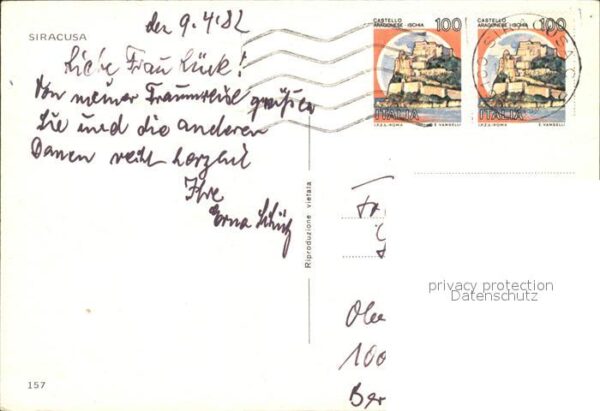 SIRACUSA
den 9.4.82
Liebe Frau Lück!
Von meiner Traumreise grüßen
Sie und die anderen
Damen recht herzlich
Ihre
Erna
CASTELLO
ARAGONESE - ISCHIA 100
ITALIA
I.P.Z.S. - ROMA E. VANGELLI
CASTELLO
ARAGONESE - ISCHIA 100
ITALIA
I.P.Z.S. - ROMA E. VANGELLI
SIRACUSA
Riproduzione vietata
Fr
privacy protection
Datenschutz
100
Ber
157